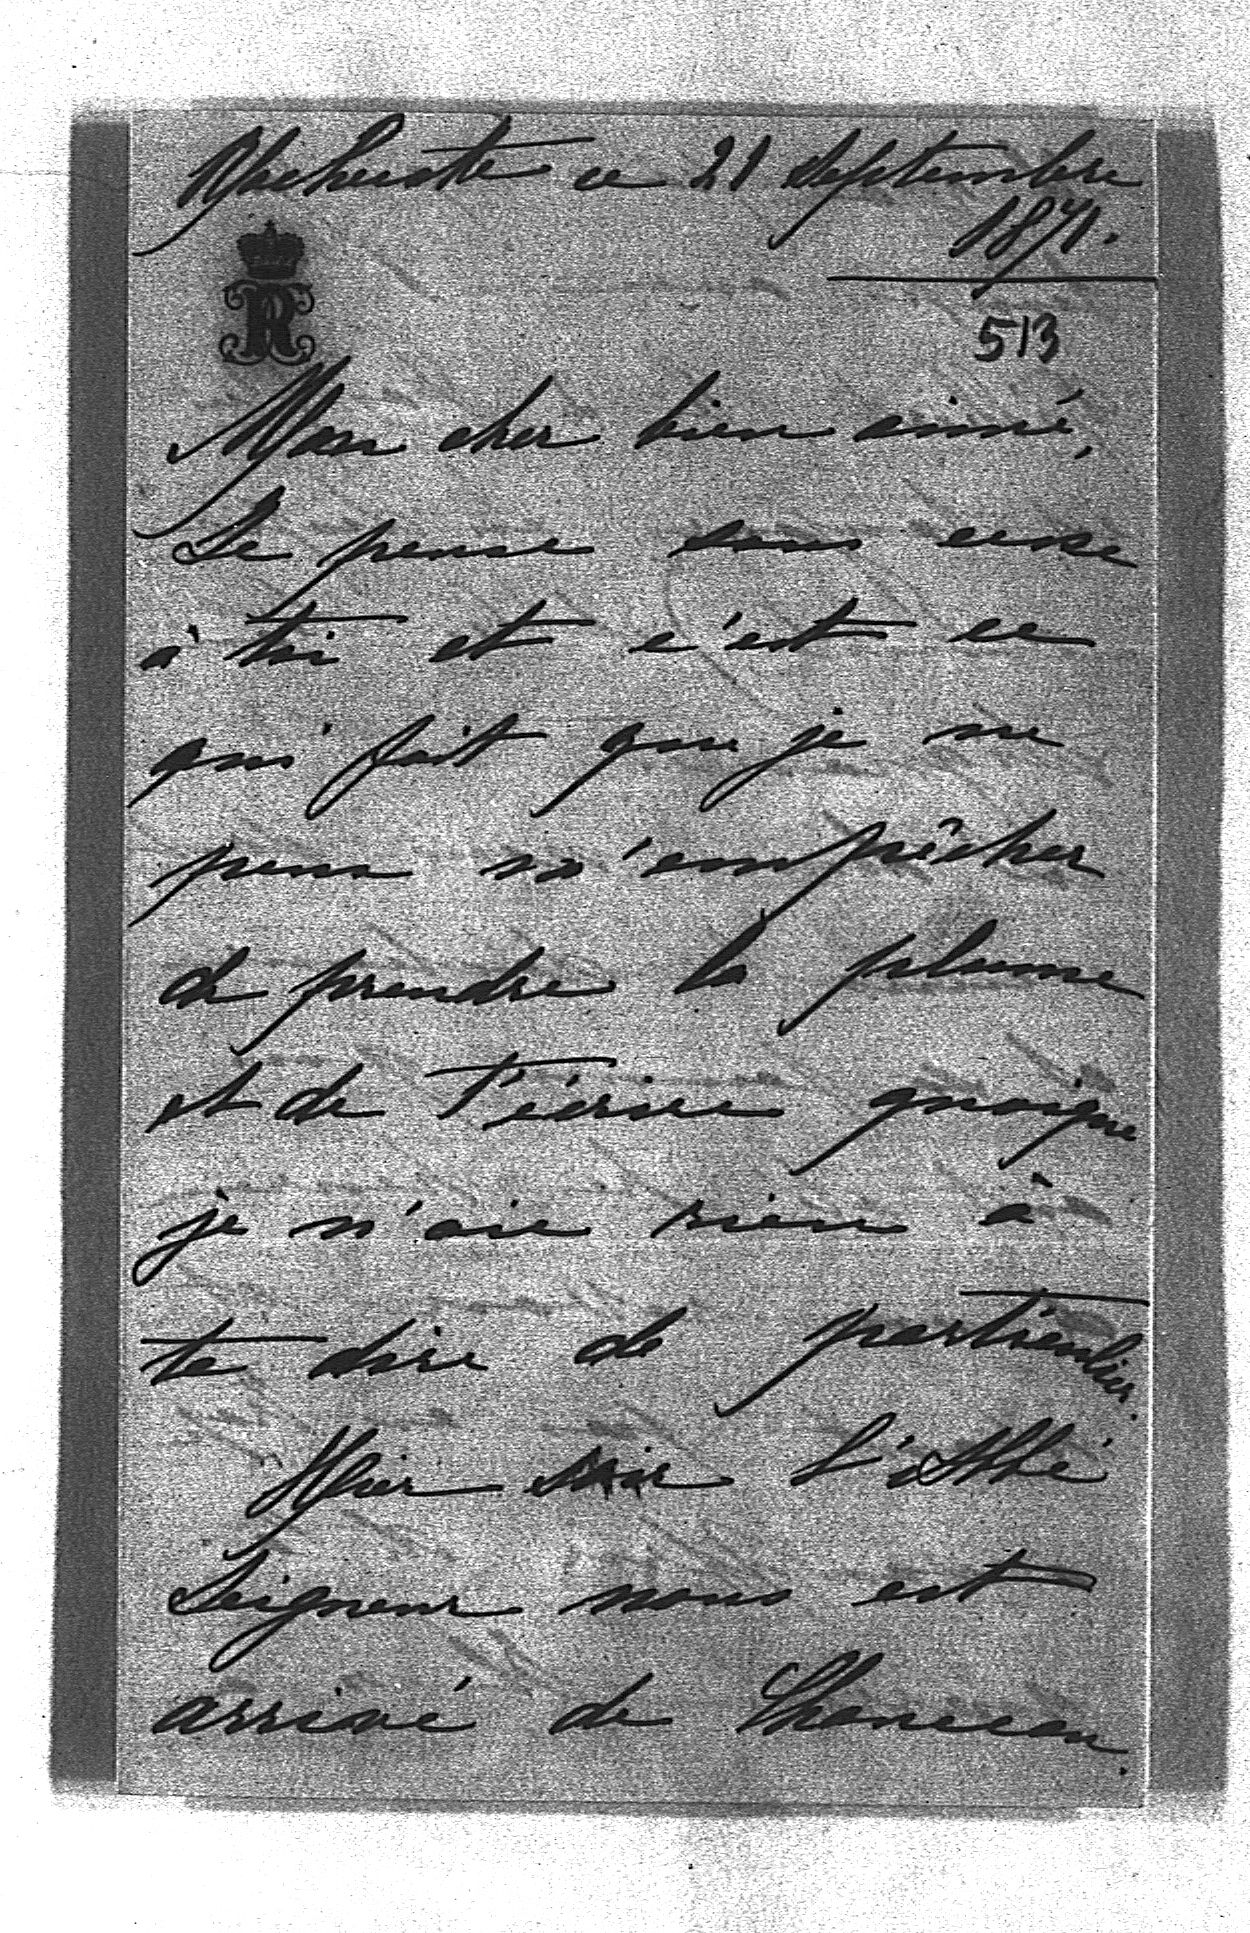 ce 21 Septembre
1871.
R
513
Mon cher bien aimé,
Je pense sans cesse
à toi et c'est ce
qui fait que je ne
peux m'empêcher
de prendre la plume
et de t'écrire quoique
je n'aie rien à
te dire de particulier.
Hier soir l'Abbé
Seigneur nous est
arrivé de